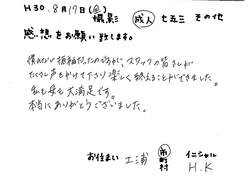 H30.8月17日(金)
撮影 成人 七五三 その他
感想をお願い致します。
慣れない振袖だったのですが、スタッフの皆さんが
たくさん声をかけて下さり楽しく終えることができました。
私も母も大満足です。
本当にありがとうございました。
お住まい 土浦 市町村 イニシャル H.K